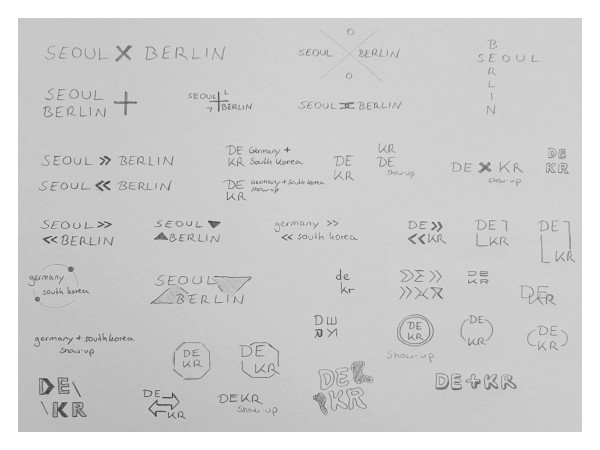 SEOUL X BERLIN
SEOUL BERLIN
O
O
BERLIN
SEOUL
SEOUL
BERLIN
+
SEOUL
BERLIN
SEOUL BERLIN
SEOUL >> BERLIN
SEOUL << BERLIN
DE Germany +
KR South Korea
DE Germany + South Korea
KR show-up
DE
KR
KR
DE
show-up
DE X KR
show-up
DE
KR
SEOUL >>
<< BERLIN
SEOUL
BERLIN
germany >>
<< south korea
DE >>
<< KR
DE
KR
DE
KR
germany
south korea
SEOUL
BERLIN
de
kr
DE
KR
DE
KR
germany + south korea
show-up
DE
KR
DE
KR
DE
KR
DE
KR
show-up
DE
KR
(DE
KR)
DE\
\KR
DE
KR
DEKR
show-up
DE
KR
DE+KR